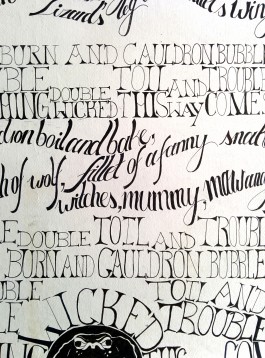 Lizards leg
BURN AND CAULDRON BUBBLE
BLE DOUBLE TOIL AND TROUBLE
HING WICKED THIS WAY COMES
dron boil and bake,
fillet of a fanny snak
h of wolf,
witches, mummy, maw and
E DOUBLE TOIL AND TROUBL
BURN AND CAULDRON BUBBLE
UBLE TOIL AND
WICKED TROUBLE